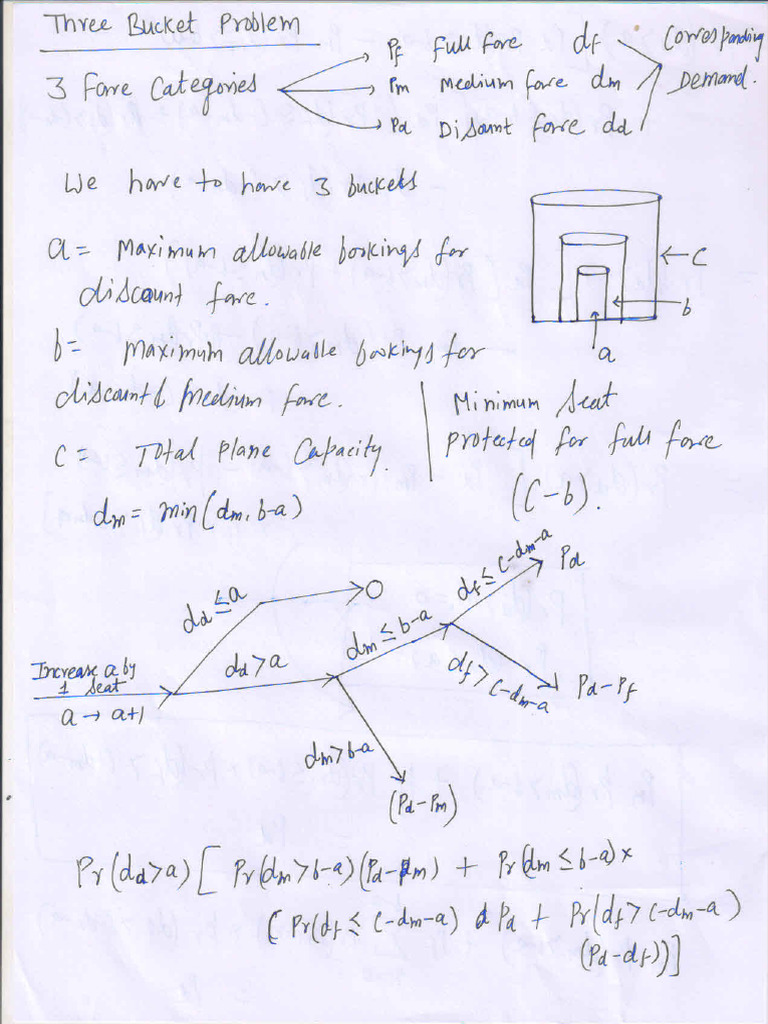 Three Bucket Problem
3 Fare Categories
Pf Full fare df
Pm Medium fare dm
Pd Disount fare dd
Corresponding
Demand.
We have to have 3 buckets
a = Maximum allowable bookings for
discount fare.
b = Maximum allowable bookings for
discount & Medium fare.
c = Total Plane Capacity.
dm = min(dm, b-a)
← C
← b
a
Minimum Seat
protected for full fare
(C-b).
Increase a by
1 seat
a → a+1
dd ≤ a
O
dd > a
dm ≤ b-a
df ≤ C-dm-a
Pd
df > C-dm-a
Pd-Pf
dm > b-a
(Pd-Pm)
Pr(dd>a) [ Pr(dm>b-a) (Pd-Pm) + Pr(dm ≤ b-a) x
( Pr(df ≤ C-dm-a) Pd + Pr(df > C-dm-a)
(Pd-df))]